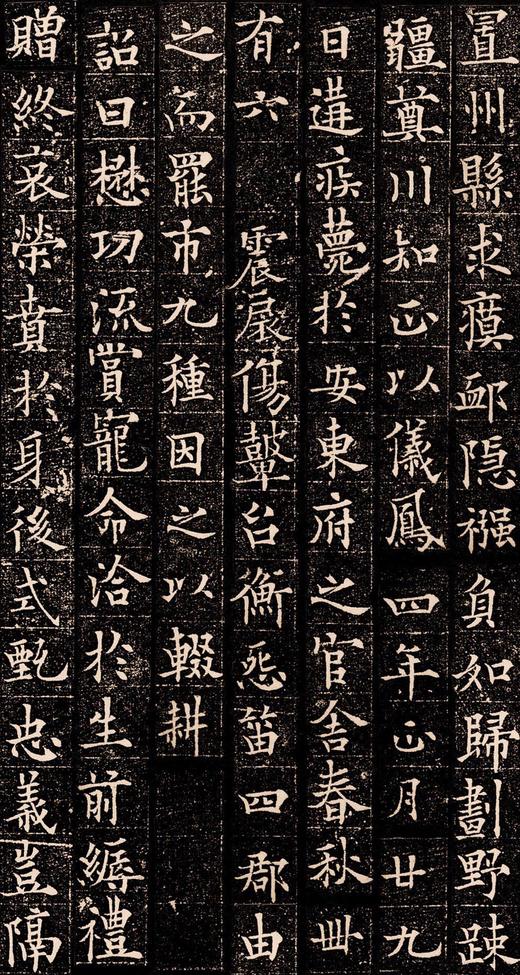 置州縣求瘼䘏隐襁負如歸劃野踈
疆奠川知正以儀鳳四年正月廿九
日遘疾薨於安東府之官舍春秋卌
有六 震扆傷鼙台衡怨笛四郡由
之而罷市九種因之以輟耕
詔曰懋功流賞寵命洽於生前縟禮
贈終哀榮賁於身後式甄忠義豈隔